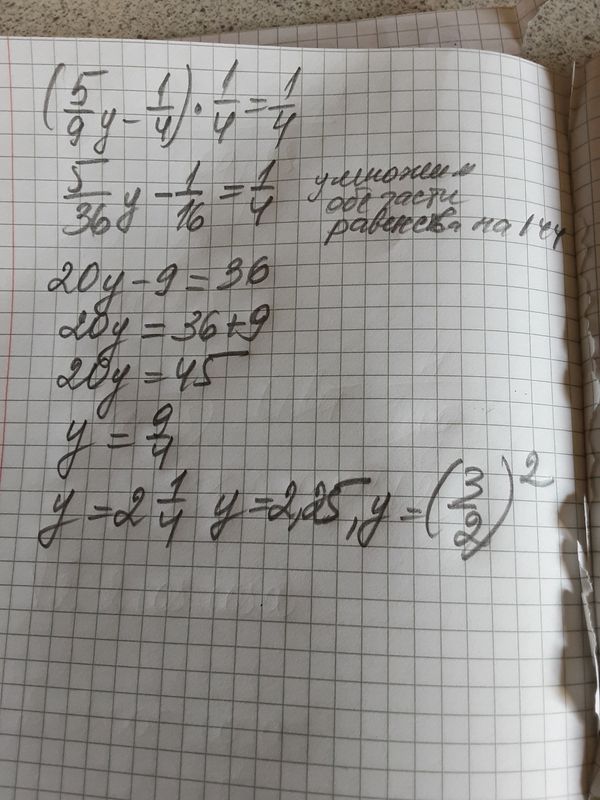 (5/9 y - 1/4) · 1/4 = 1/4
5/36 y - 1/16 = 1/4
умножим
обе части
равенства на 144
20y - 9 = 36
20y = 36 + 9
20y = 45
y = 9/4
y = 2 1/4 y = 2,25, y = (3/2)²